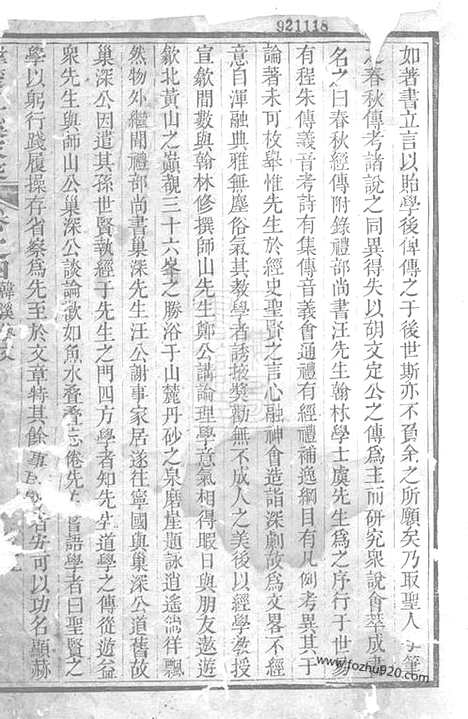 921118
如著書立言以貽學後俾傳之于後世斯亦不負余之所願矣乃取聖人手筆
之春秋傳考諸說之同異得失以胡文定公之傳爲主而研究衆說會萃成書
名之曰春秋經傳附錄禮部尚書汪先生翰林學士虞先生爲之序行于世易
有程朱傳義音考詩有集傳音義會通禮有經禮補逸綱目有凡例考異其于
論著未可枚舉惟先生於經史聖賢之言心融神會造詣深劇故爲文畧不經
意自渾融典雅無塵俗氣其教學者誘掖獎勸無不成人之美後以經學教授
宣歙間數與翰林修撰師山先生鄭公講論理學意氣相得暇日與朋友遨遊
歙北黃山之巔觀三十六峯之勝浴于山麓丹砂之泉磨崖題詠逍遙徜徉飄
然物外繼聞禮部尚書巢深先生汪公謝事家居遂往寧國與巢深公道舊故
巢深公因遣其孫世賢執經于先生之門四方學者知先生道學之傳從遊益
衆先生與師山公巢深公談論歡如魚水叠叠忘倦先生嘗語學者曰聖賢之
學以躬行踐履操存省察爲先至於文章特其餘事 者安可以功名顯赫
卷之四
韓溪
www.fozhu920.com